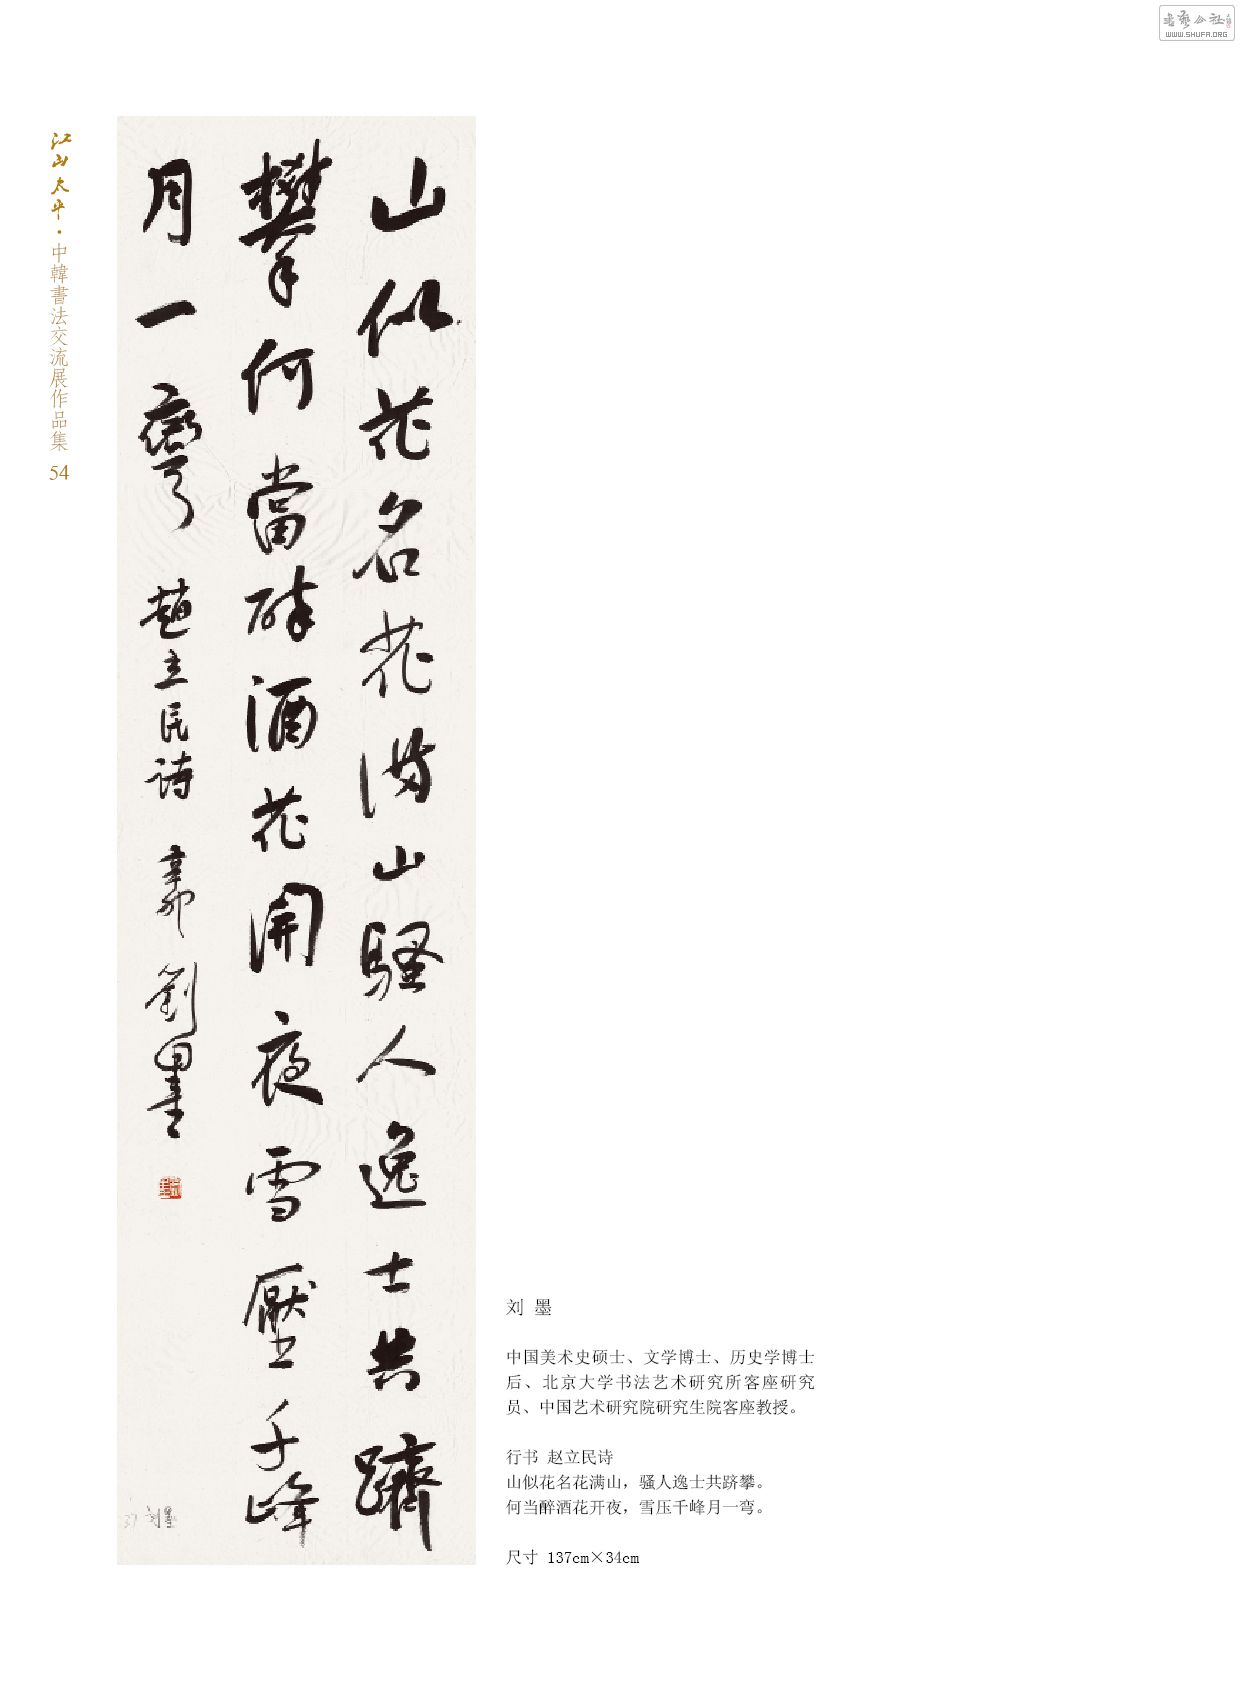 書藝公社
WWW.SHUFA.ORG
江山太平·中韓書法交流展作品集 54
山似花名花滿山騷人逸士共躋
攀何當醉酒花開夜雪壓千峰
月一彎 趙立民詩 辛卯 劉墨
刘墨
刘 墨
中国美术史硕士、文学博士、历史学博士
后、北京大学书法艺术研究所客座研究
员、中国艺术研究院研究生院客座教授。
行书 赵立民诗
山似花名花满山，骚人逸士共跻攀。
何当醉酒花开夜，雪压千峰月一弯。
尺寸 137cm×34cm